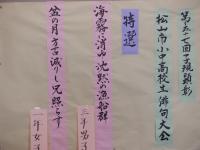 第五十七回子規顕彰
松山市小中高校生俳句大会
特選
海霧に消ゆ沈黙の漁船群
三年男子
盆の月方言減りし兄照らす
一年女子